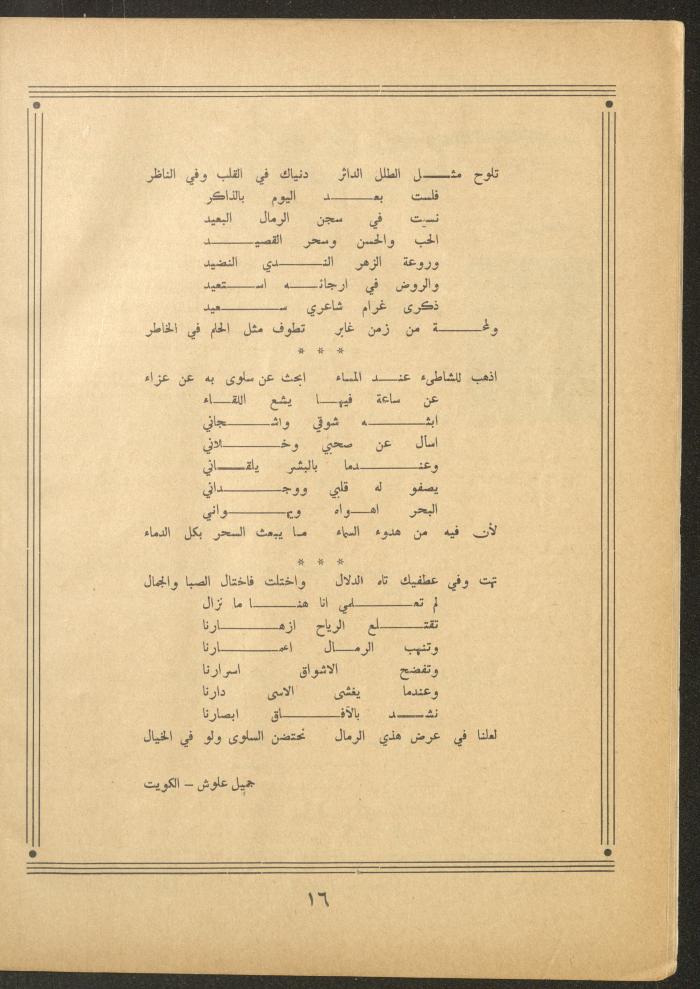 تلوح مثل الطلل الداثر دنياك في القلب وفي الناظر
فلست بعد اليوم بالذاكر
نسيت في سجن الرمال البعيد
الحب والحسن وسحر القصيد
وروعة الزهر الندي النضيد
والروض في ارجائه استعيد
ذكرى غرام شاعري سعيد
ولمحة من زمن غابر تطوف مثل الحلم في الخاطر
* * *
اذهب للشاطىء عند المساء ابحث عن سلوى به عن عزاء
عن ساعة فيها يشع اللقاء
ابثه شوقي واشجاني
اسأل عن صحبي وخلاني
وعندما بالبشر يلقاني
يصفو له قلبي ووجداني
البحر اهواه ويهواني
لأن فيه من هدوء السماء ما يبعث السحر بكل الدماء
* * *
تهت وفي عطفيك تاه الدلال واختلت فاختال الصبا والجمال
لم تعلمي انا هنا ما نزال
تقتلع الرياح ازهارنا
وتنهب الرمال اعمارنا
وتفضح الاشواق اسرارنا
وعندما يغشى الاسى دارنا
نشد بالآفاق ابصارنا
لعلنا في عرض هذي الرمال نحتضن السلوى ولو في الخيال
جميل علوش – الكويت
١٦